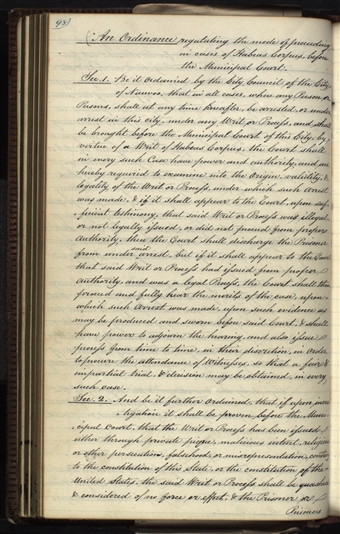 98)
An Ordinance regulating the mode of proceeding
in cases of Habeas Corpus, before
the Municipal Court.
Sec. 1. Be it ordained by the City Council of the City
of Nauvoo, that in all cases, where any Person or
Persons, shall at any time hereafter, be arrested or under
arrest in this city, under any Writ or Process, and shall
be brought before the Municipal Court of this City, by
virtue of a Writ of Habeas Corpus, the Court shall
in every such Case have power and authority, and are
hereby required to examine into the Origin, validity, &
legality of the Writ or Process, under which such arrest
was made, & if it shall appear to the Court, upon suf-
ficient testimony, that said Writ or Process was illegal,
or not legally issued, or did not proceed from proper
Authority, then the Court shall discharge the Prisoner
from under said arrest, but if it shall appear to the Court
that said Writ or Process had issued from proper
Authority, and was a legal Process, the Court shall then
proceed and fully hear the merits of the case, upon
which such Arrest was made, upon such evidence as
may be produced and sworn before said Court, & shall
have power to adjourn the hearing, and also issue
process from time to time, in their discretion, in Order
to procure the attendance of Witnesses, so that a fair &
impartial trial, & decision may be obtained, in every
such case.
Sec. 2. And be it further ordained, that if upon inves
tigation it shall be proven before the Muni-
cipal Court, that the Writ or Process has been issued,
either through private pique, malicious intent, religious
or other persecution, falsehood, or misrepresentation, contrary
to the constitution of this State, or the constitution of the
United States, the said Writ or Process shall be quashed
& considered of no force or effect, & the Prisoner or
Prisoners